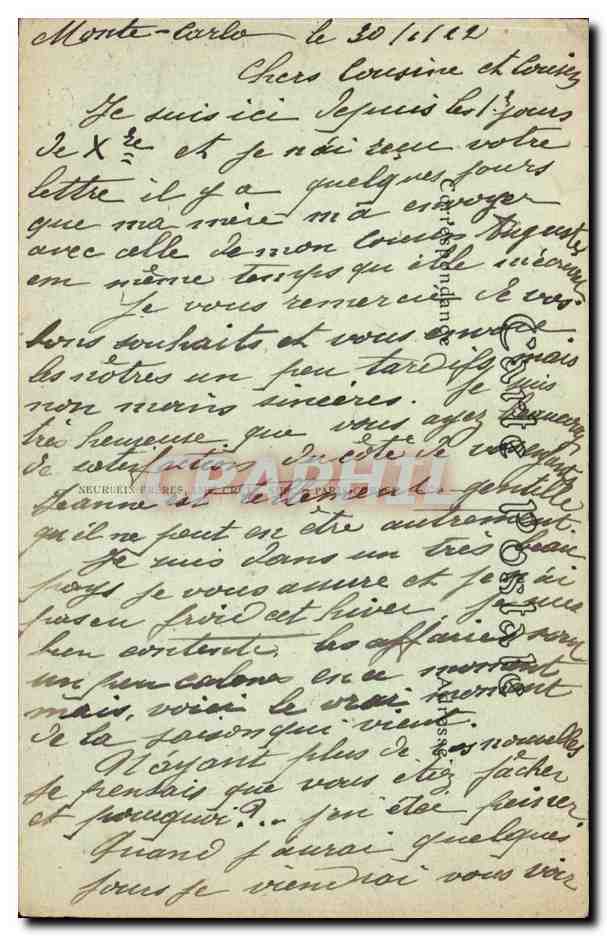 Monte-Carlo le 30/1/22
Chers Cousine et Cousin
Je suis ici depuis les 1rs jours
de Xbre et je n'ai reçu votre
lettre il y a quelques jours
que ma mère m'a envoyer
avec celle de mon cousin Auguste
em même temps qu'elle m'écrivait
Je vous remercie de vos
bons souhaits et vous envoie
les nôtres un peu tardifs mais
non moins sincères. Je suis
très heureuse que vous ayez beaucoup
de satisfactions du côté de vos enfants
Jeanne est tellement gentille
qu'il ne peut en être autrement.
Je suis dans un très beau
pays je vous assure et je n'ai
pas eu froid cet hiver. Je suis
bien contente. les affaires sont
un peu calmes en ce moment
mais, voici le vrai moment
de la saison qui vient.
N'ayant plus de vos nouvelles
je pensais que vous étiez fâcher
et pourquoi?... j'en étai peinée
Quand j'aurai quelques
jours je viendrai vous voir
Carte Postale
Correspondance
Adresse
NEURDEIN FRÈRES
CPAPHIL